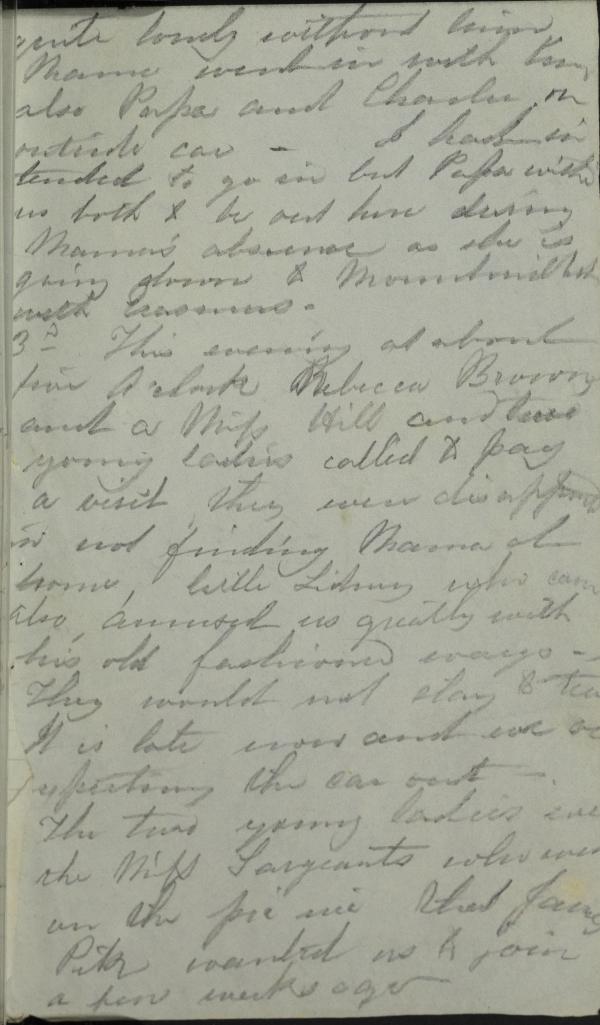 quite lonely without him
Mama went in with him
also Papa and Charlie on
outside car - I had in
tended to go in but Papa wish
us both to be out here during
Mama's absence as she is
going down to Mountmellick
with Erasmus -
3rd This evening at about
five O'clock Rebecca Brown
and a Miss Hill and two
young ladies called to pay
a visit, they were disappoint
in not finding Mama at
home, little Sidney who came
also, amused us greatly with
his old fashioned ways -
They would not stay to tea
It is late now and we
expecting the car out -
The two young ladies were
the Miss Sargeants who were
on the pic nic that
Pike wanted us to join
a few weeks ago